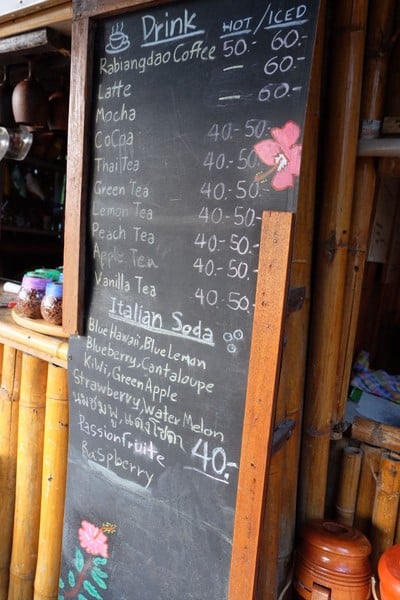 Drink HOT/ICED
Rabiangdao Coffee 50.- 60.-
Latte — 60.-
Mocha — 60.-
CoCoa 40.-50.-
Thai Tea 40.-50.-
Green Tea 40.-50.-
Lemon Tea 40.-50.-
Peach Tea 40.-50.-
Apple Tea 40.-50.-
Vanilla Tea 40.-50.-
Italian Soda
Blue Hawaii, Blue Lemon
Blueberry, Cantaloupe
Kiwi, Green Apple
Strawberry, Water Melon
นมชมพู, แดงโซดา
Passionfruite 40.-
Raspberry